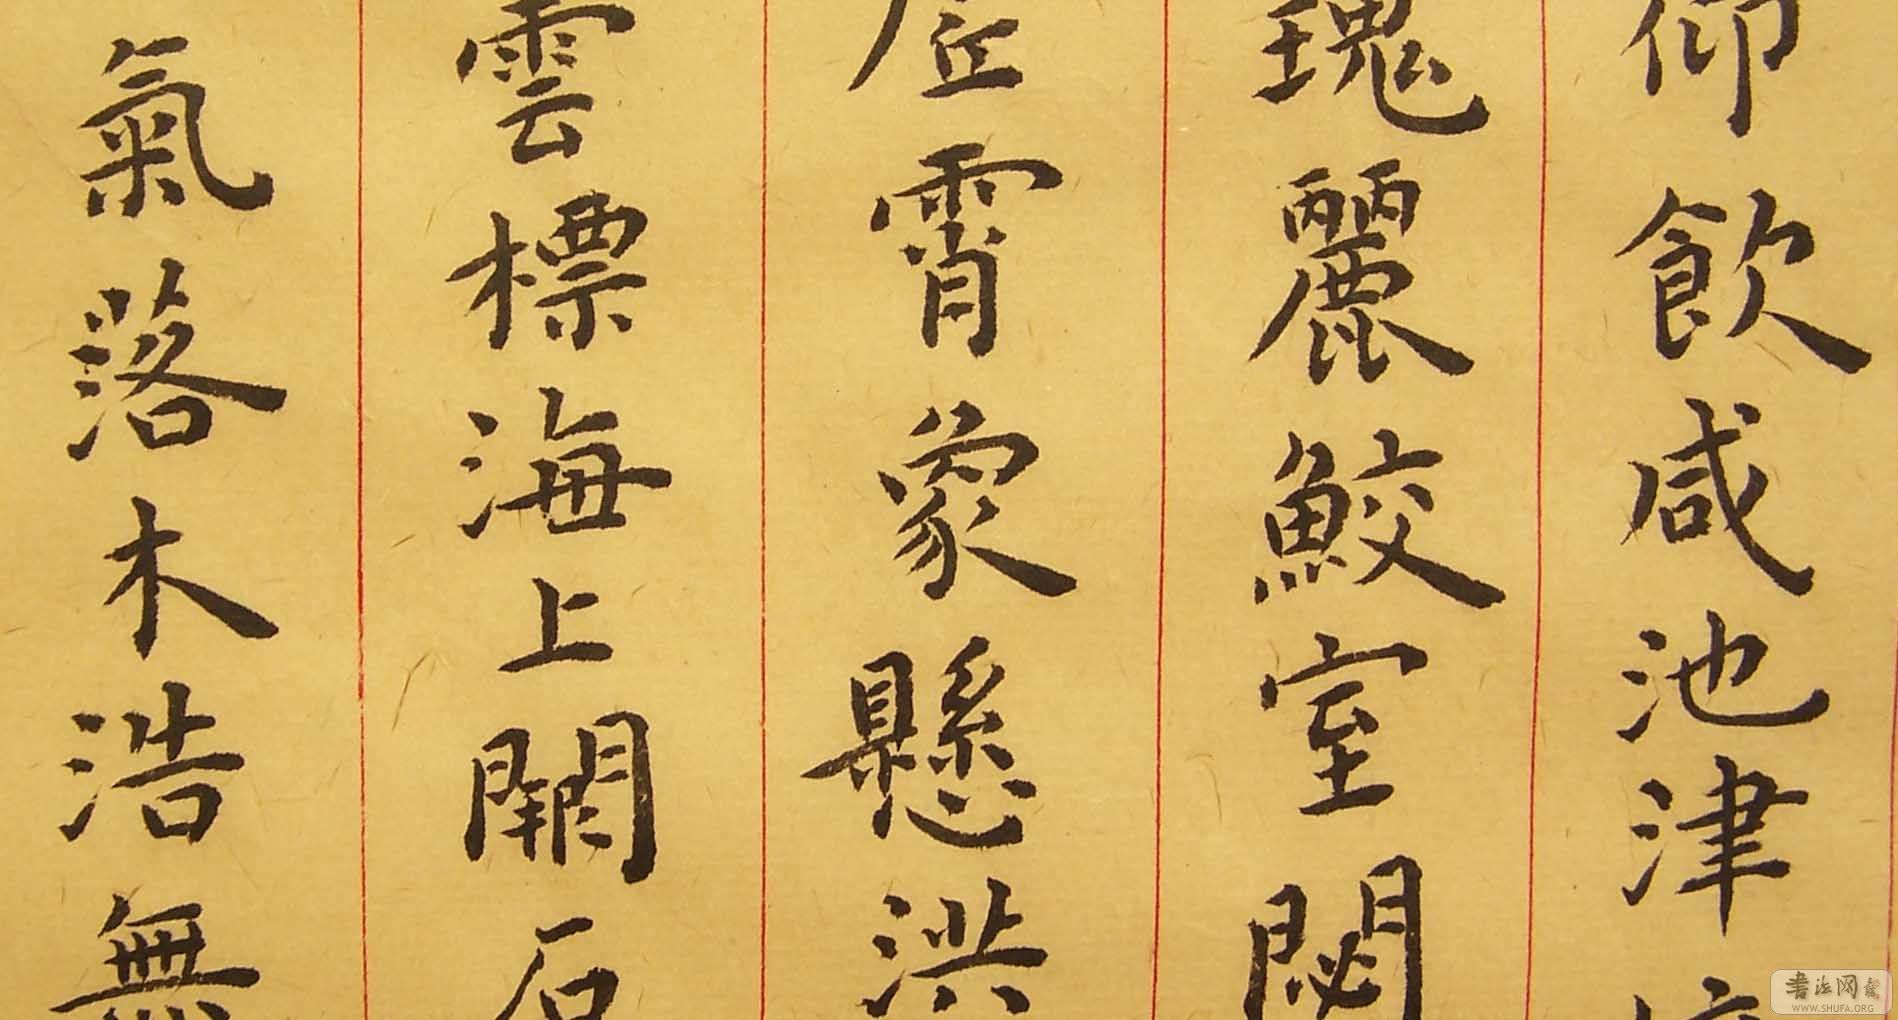 仰飲咸池津
瑰麗鮫室閟
虛霄象懸洪
雲標海上開石
氣落木浩無
書法网
WWW.SHUFA.ORG